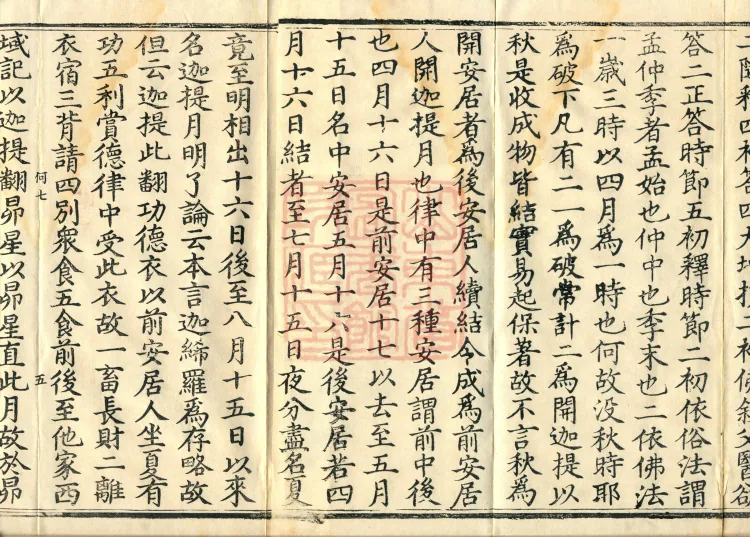 答二正答時節五初釋時節二初依俗法謂
孟仲季者孟始也仲中也季末也二依佛法
一歲三時以四月為一時也何故没秋時耶
為破下凡有二一為破常計二為開迦提以
秋是收成物皆結實易起保著故不言秋為
開安居者為後安居人續結令成為前安居
人開迦提月也律中有三種安居謂前中後
也四月十六日是前安居十七以去至五月
十五日名中安居五月十六是後安居若四
月十六日結者至七月十五日夜分盡名夏
竟至明相出十六日後至八月十五日以來
名迦提月明了論云本言迦絺羅為存略故
但云迦提此翻功德衣以前安居人坐夏有
功五利賞德律中受此衣故一畜長財二離
衣宿三背請四別衆食五食前後至他家西
何七
五
域記以迦提翻昴星以昴星直此月故於昴